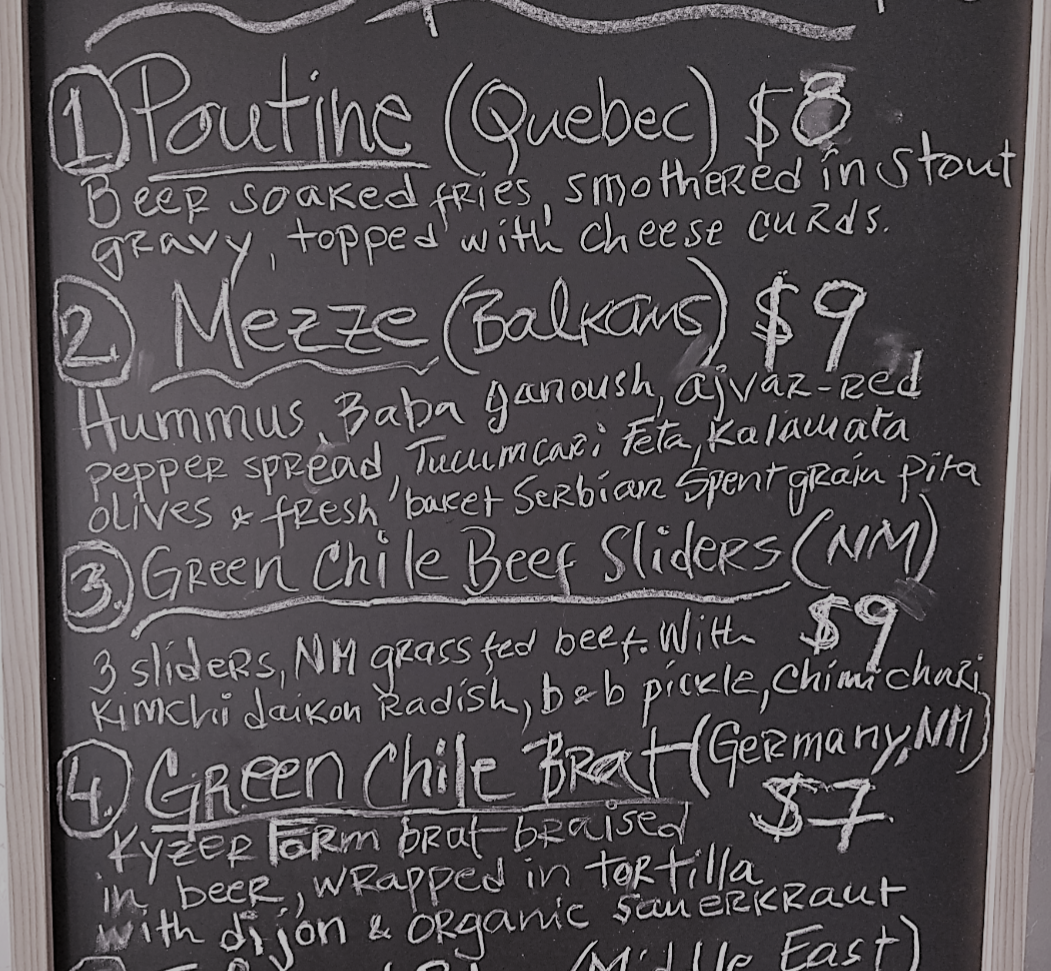 1 Poutine (Quebec) $8
Beer soaked fries, smothered in stout
gravy, topped with cheese curds.
2 Mezze (Balkans) $9
Hummus, Baba ganoush, ajvar-red
pepper spread, Tucumcari Feta, Kalamata
olives & fresh baket Serbian Spent grain pita
3. Green Chile Beef Sliders (NM)
$9
3 sliders, NM grass fed beef. With
Kimchi daikon Radish, b&b pickle, chimichuri
4. Green Chile Brat (Germany, NM)
$7
Kyzer Farm brat braised
in beer, wrapped in tortilla
with dijon & organic sauerkraut
(Middle East)